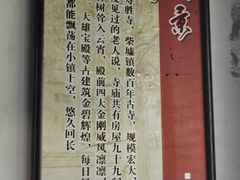 景
寿胜寺，柴墟镇数百年古寺，规模宏大，
见过的老人说，寺庙共有房屋九十九
树耸入云霄，殿前四大金刚威风凛凛
大雄宝殿等古建筑金碧辉煌，每日
都能飘荡在小镇上空，悠久回长